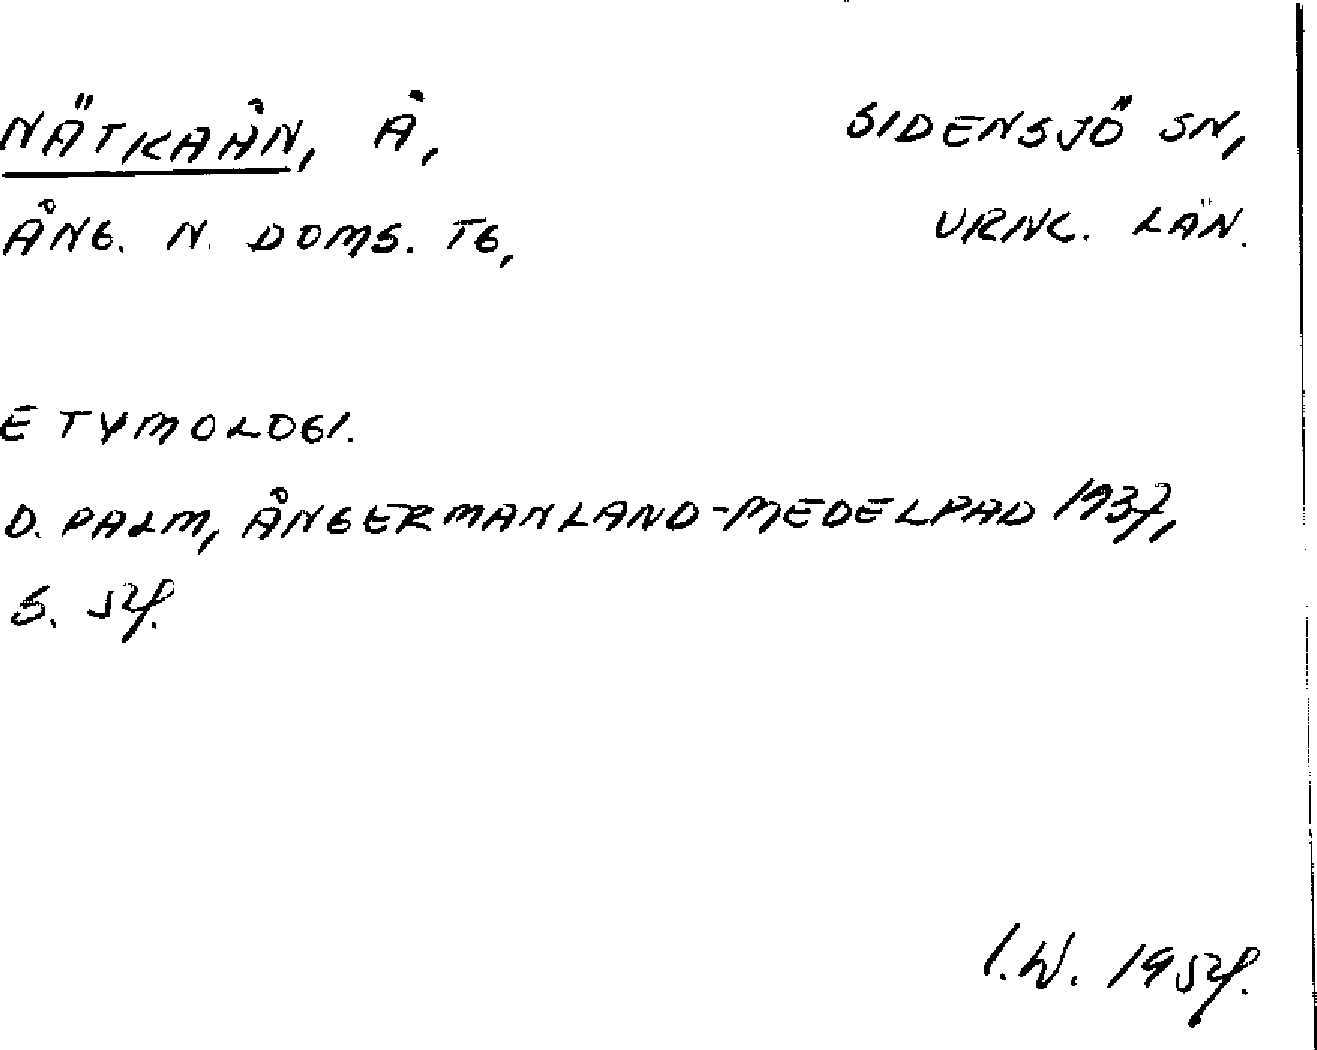 NÄTKAÅN, Å, SIDENSJÖ SN,
ÅNG. N. DOMS. TG, VRNL. LÄN.
ETYMOLOGI.
D. PALM, ÅNGERMANLAND-MEDELPAD 1937,
S. 54.
I.W. 1954.